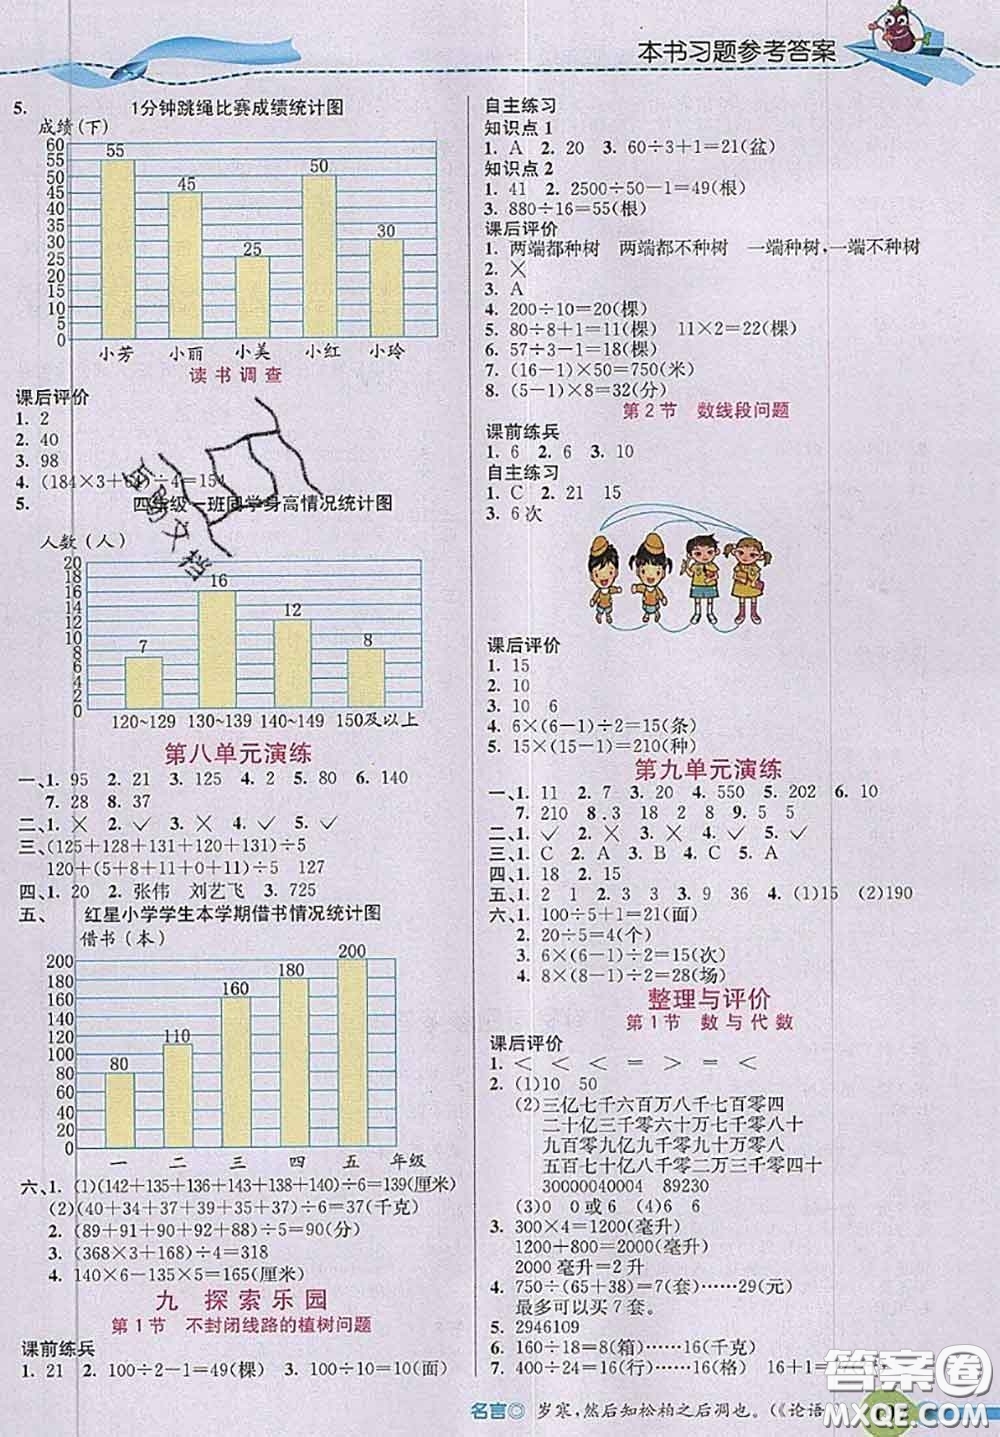 本书习题参考答案
5. 1分钟跳绳比赛成绩统计图
成绩(下)
60
55
50
45
40
35
30
25
20
15
10
5
0
55 45 25 50 30
小芳 小丽 小美 小红 小玲
读书调查
课后评价
1. 2
2. 40
3. 98
4. (184×3+64)÷4=154
5. 四年级一班同学身高情况统计图
人数(人)
20
18
16
14
12
10
8
6
4
2
0
7 16 12 8
120~129 130~139 140~149 150及以上
第八单元演练
一、1. 95 2. 21 3. 125 4. 2 5. 80 6. 140
7. 28 8. 37
二、1. × 2. ✓ 3. × 4. ✓ 5. ✓
三、(125+128+131+120+131)÷5
120+(5+8+11+0+11)÷5 127
四、1. 20 2. 张伟 刘艺飞 3. 725
五、 红星小学学生本学期借书情况统计图
借书(本)
200
180
160
140
120
100
80
60
40
20
0
80 110 160 180 200
一 二 三 四 五 年级
六、1. (1)(142+135+136+143+138+140)÷6=139(厘米)
(2)(40+34+37+39+35+37)÷6=37(千克)
2. (89+91+90+92+88)÷5=90(分)
3. (368×3+168)÷4=318
4. 140×6-135×5=165(厘米)
九 探索乐园
第1节 不封闭线路的植树问题
课前练兵
1. 21 2. 100÷2-1=49(棵) 3. 100÷10=10(面)
自主练习
知识点1
1. A 2. 20 3. 60÷3+1=21(盆)
知识点2
1. 41 2. 2500÷50-1=49(根)
3. 880÷16=55(根)
课后评价
1. 两端都种树 两端都不种树 一端种树,一端不种树
2. ×
3. A
4. 200÷10=20(棵)
5. 80÷8+1=11(棵) 11×2=22(棵)
6. 57÷3-1=18(棵)
7. (16-1)×50=750(米)
8. (5-1)×8=32(分)
第2节 数线段问题
课前练兵
1. 6 2. 6 3. 10
自主练习
1. C 2. 21 15
3. 6次
课后评价
1. 15
2. 10
3. 10 6
4. 6×(6-1)÷2=15(条)
5. 15×(15-1)÷2=210(种)
第九单元演练
一、1. 11 2. 7 3. 20 4. 550 5. 202 6. 10
7. 210 8. 3 18 2 8 9. 5 5
二、1. ✓ 2. × 3. × 4. × 5. ✓
三、1. C 2. A 3. B 4. C 5. A
四、1. 18 2. 15
五、1. 2 1 2. 1 3 3. 9 36 4. (1)15 (2)190
六、1. 100÷5+1=21(面)
2. 20÷5=4(个)
3. 6×(6-1)÷2=15(次)
4. 8×(8-1)÷2=28(场)
整理与评价
第1节 数与代数
课后评价
1. < < < = > = <
2. (1)10 50
(2)三亿七千六百万八千七百零四
二十亿零三千零六十万七千八十
九百零九亿九千零九十万零八
五百七十亿八千零二万三千零四
30000040004 89230
(3)0 0或6 (4)6 6
3. 300×4=1200(毫升)
1200+800=2000(毫升)
2000毫升=2升
4. 750÷(65+38)=7(套)……29(元)
最多可以买7套。
5. 2946109
6. 160÷18=8(箱)……16(千克)
7. 400÷24=16(行)……16(格) 16+1=
名言◎ 岁寒,然后知松柏之后凋也。(《论语
答案圈
MXQE.COM